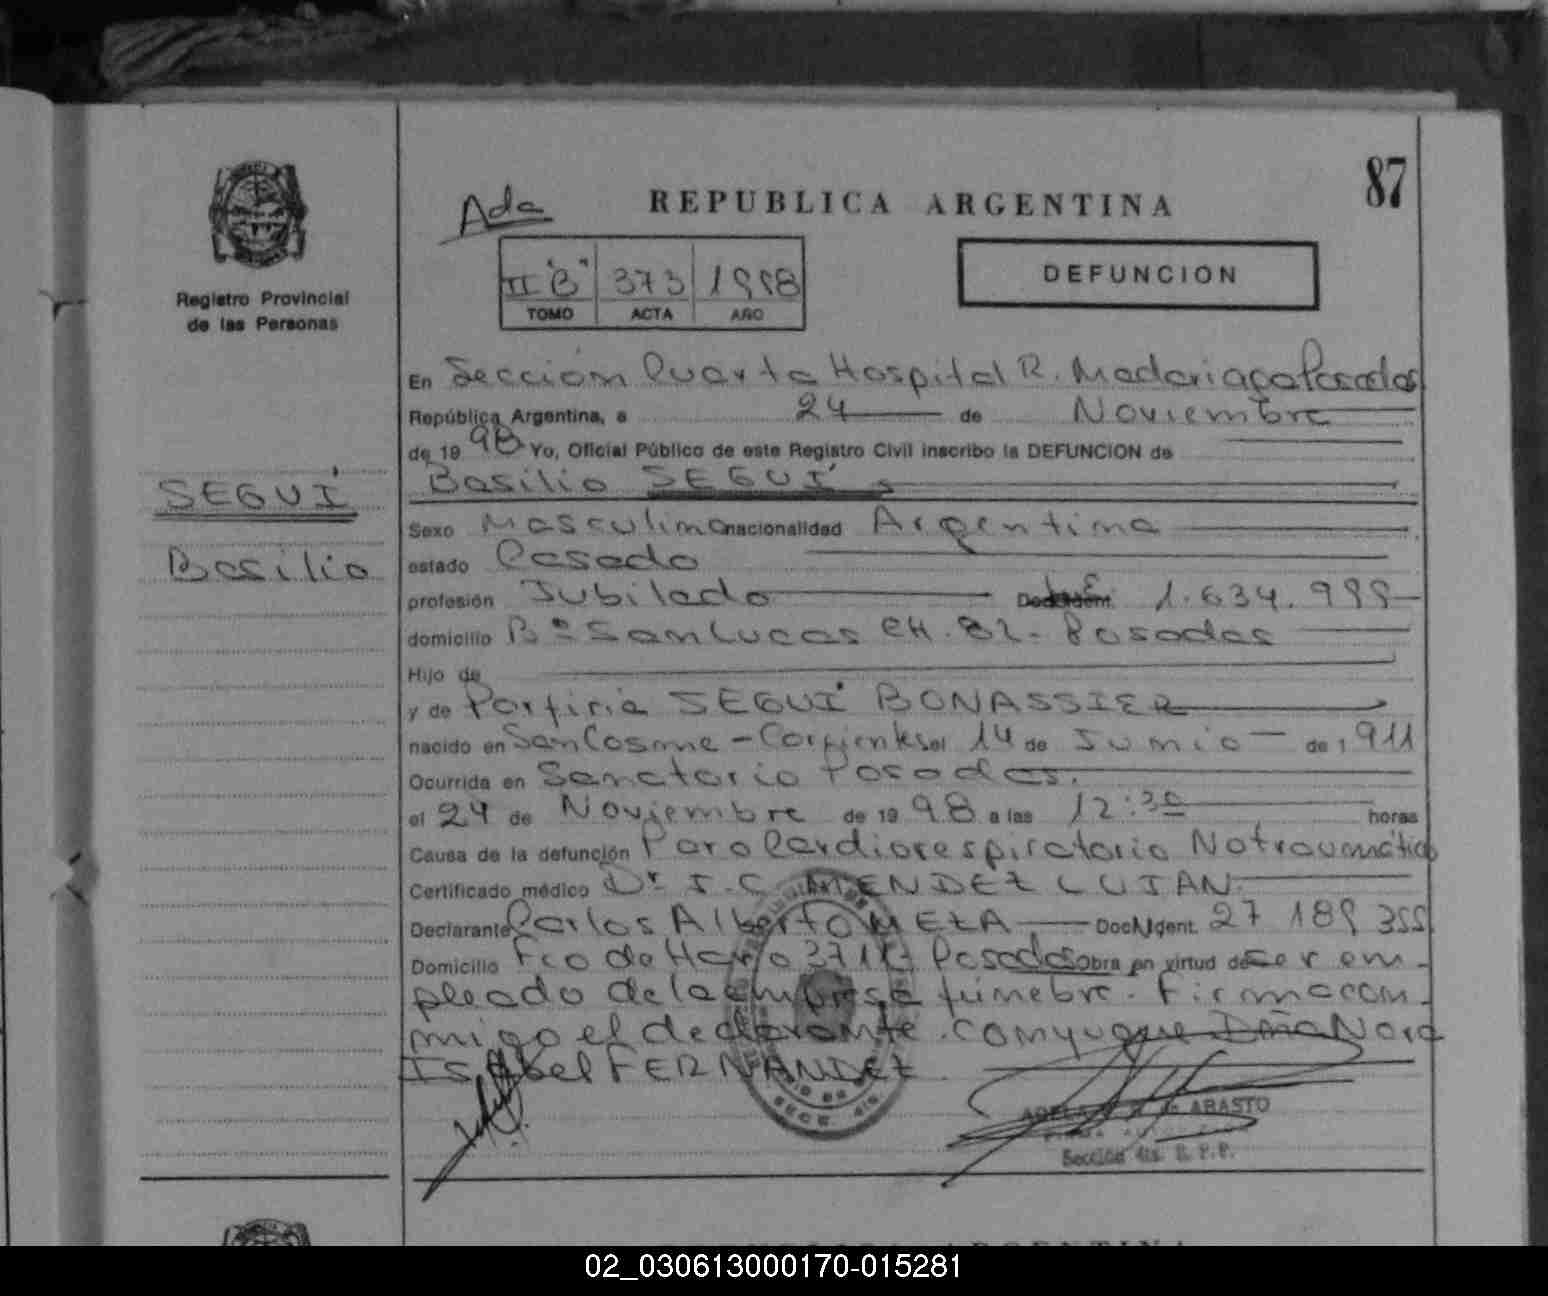 87
Ada
REPUBLICA ARGENTINA
II "B" 373 1998
TOMO ACTA AÑO
DEFUNCION
Registro Provincial
de las Personas
SEGUÍ
Basilio
En Sección Cuarta Hospital R. Madariaga Posadas
República Argentina, a 24 de Noviembre
de 1998 Yo, Oficial Público de este Registro Civil inscribo la DEFUNCION de
Basilio SEGUÍ
Sexo Masculino nacionalidad Argentina
estado Casado
profesión Jubilado 1.634.999
domicilio Bº San Lucas CH. 82 - Posadas
Hijo de
y de Porfiria SEGUÍ BONASSIER
nacido en San Cosme - Corrientes el 14 de Junio de 1911
Ocurrida en Sanatorio Posadas.
el 24 de Noviembre de 1998 a las 12:30 horas
Causa de la defunción Paro Cardiorespiratorio No traumático
Certificado médico Dr. J. C. MENDEZ LUJAN
Declarante Carlos Alberto MEZA Doc. Ident. 27 189 355
Domicilio Fco de Haro 3718 Posadas obra en virtud de ser em-
pleado de la empresa fúnebre. Firma con-
migo el declarante. Conyugue Dña Nora
Isabel FERNANDEZ
ABASTO
Sección 4ta. R.P.P.
02_030613000170-015281